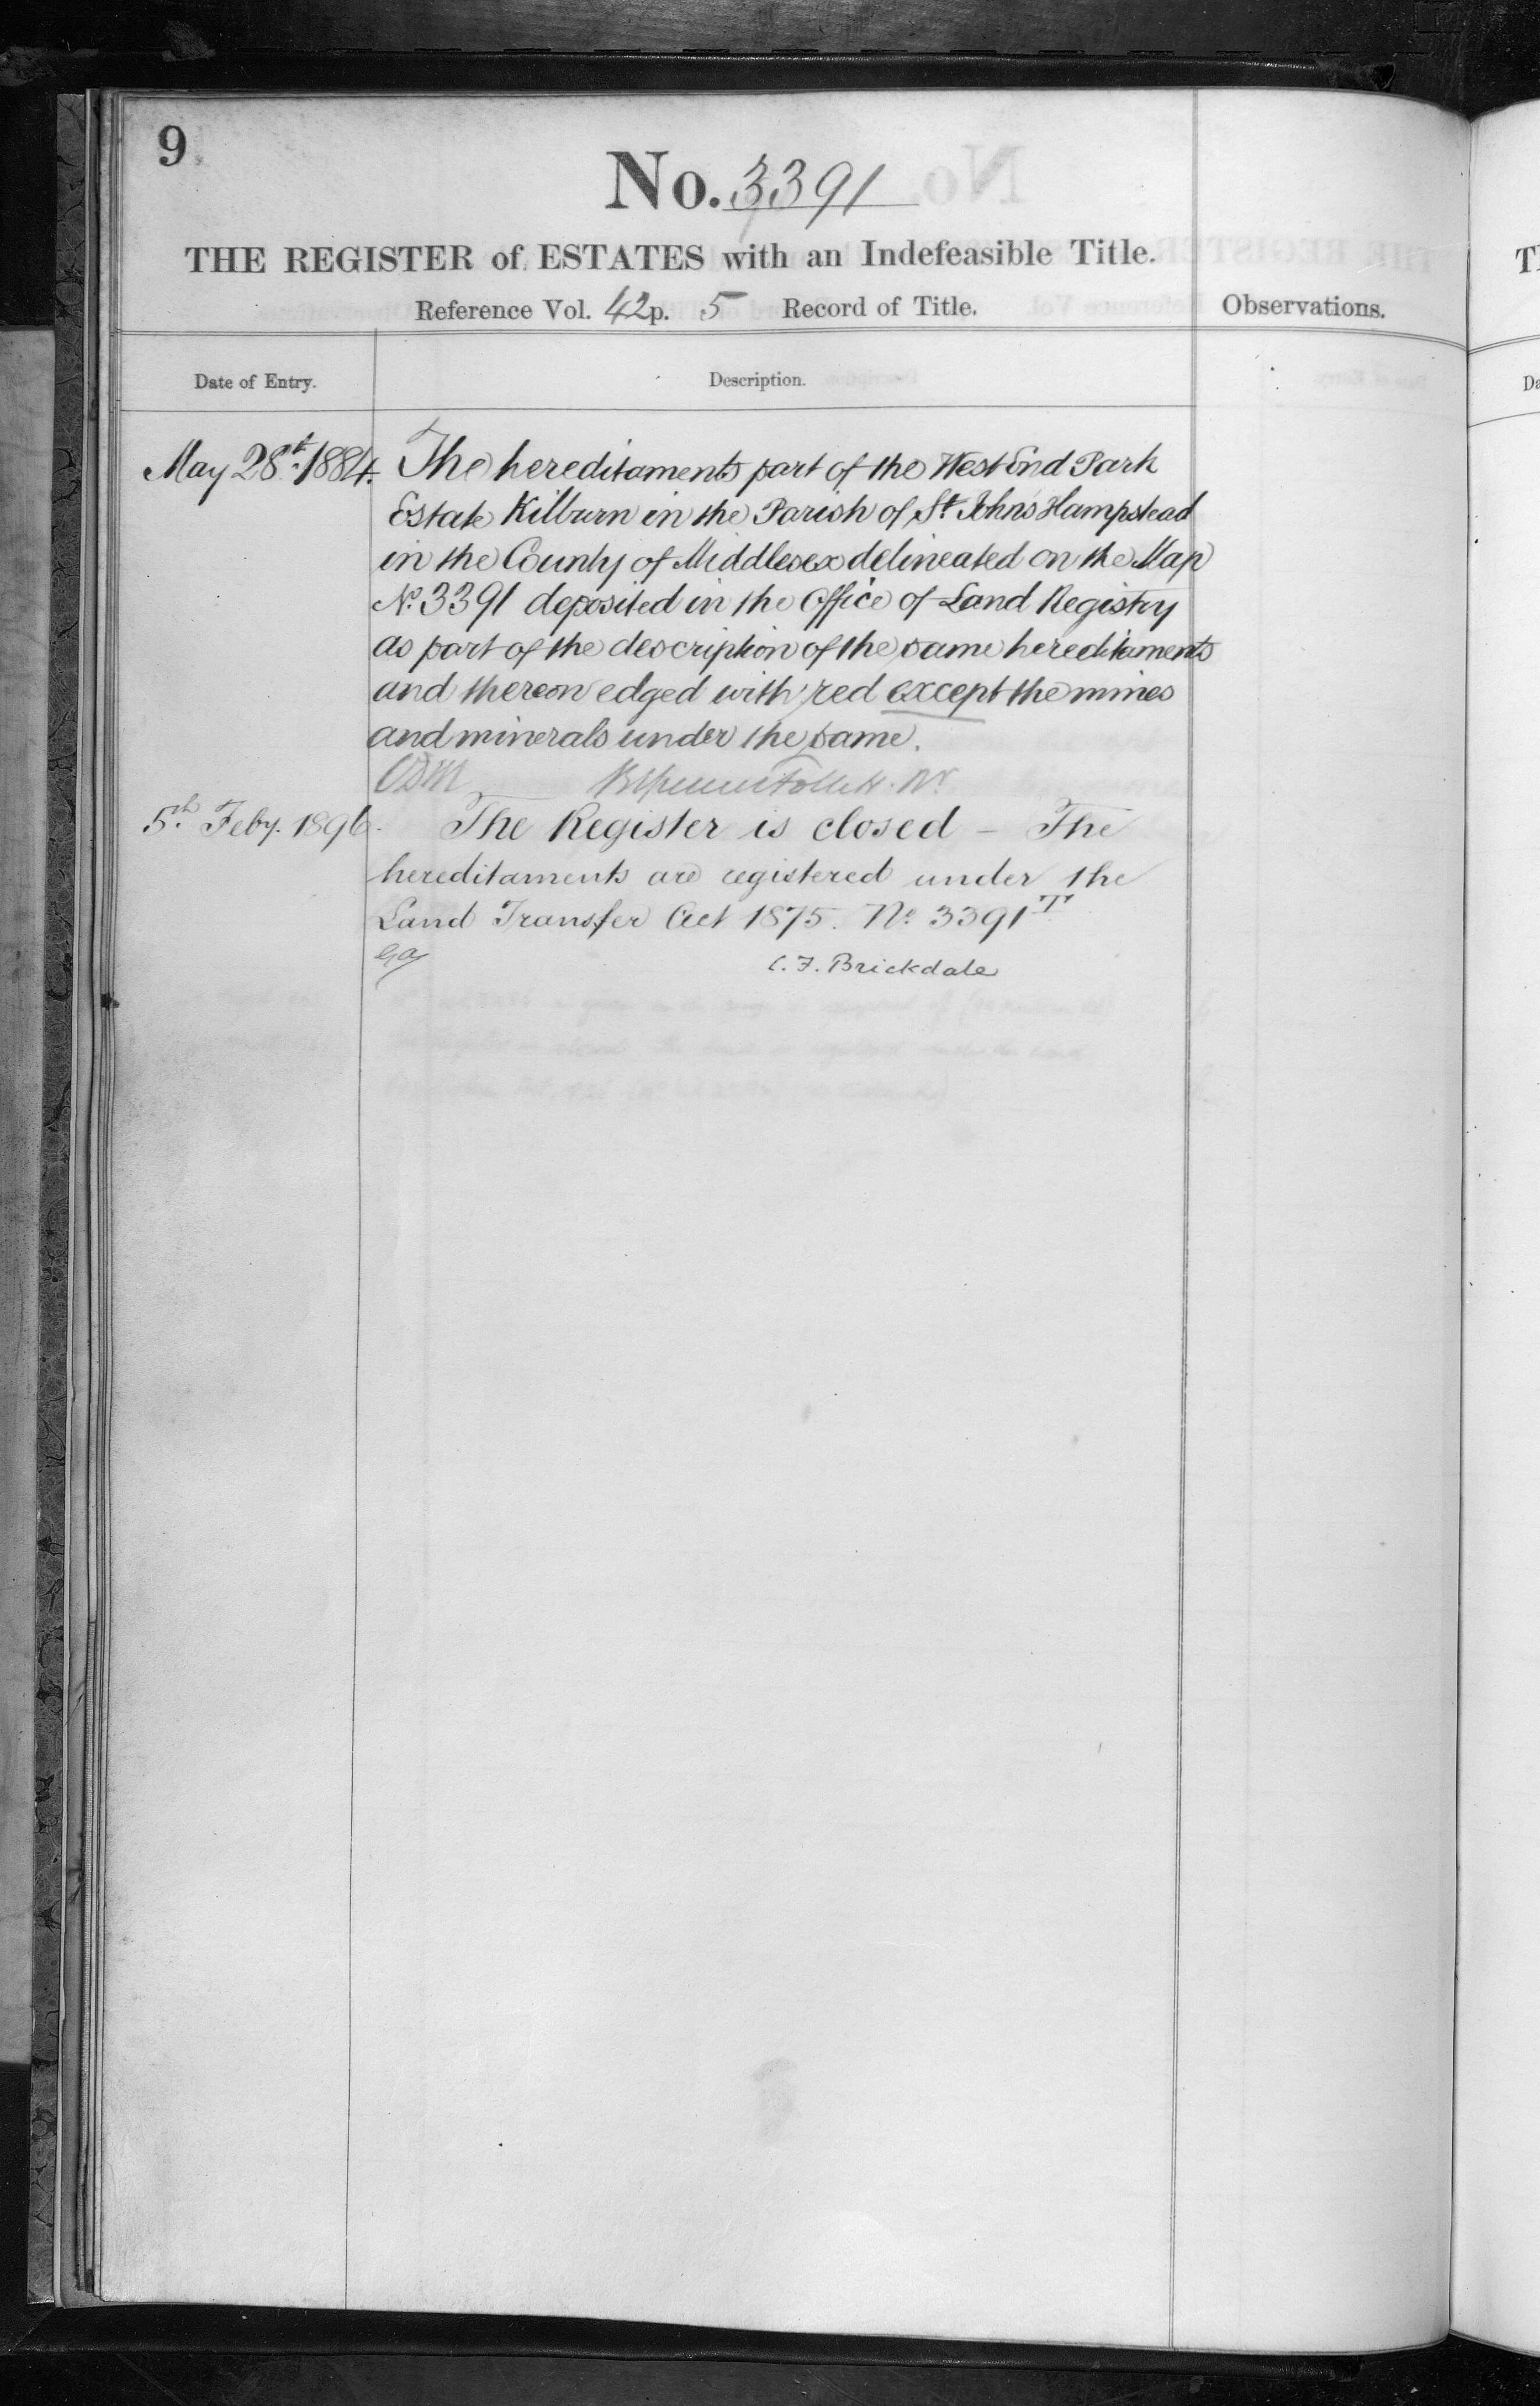 9
No. 3391
THE REGISTER of ESTATES with an Indefeasible Title.
Reference Vol. 42 p. 5 Record of Title.
Observations.
Date of Entry.
Description.
May 28th 1884. The hereditaments part of the West End Park
Estate Kilburn in the Parish of St. Johns Hampstead
in the County of Middlesex delineated on the Map
No. 3391 deposited in the Office of Land Registry
as part of the description of the same hereditaments
and thereon edged with red except the mines
and minerals under the same.
5th Feby. 1896. The Register is closed – The
hereditaments are registered under the
Land Transfer Act 1875. No. 3391 T
C. F. Brickdale